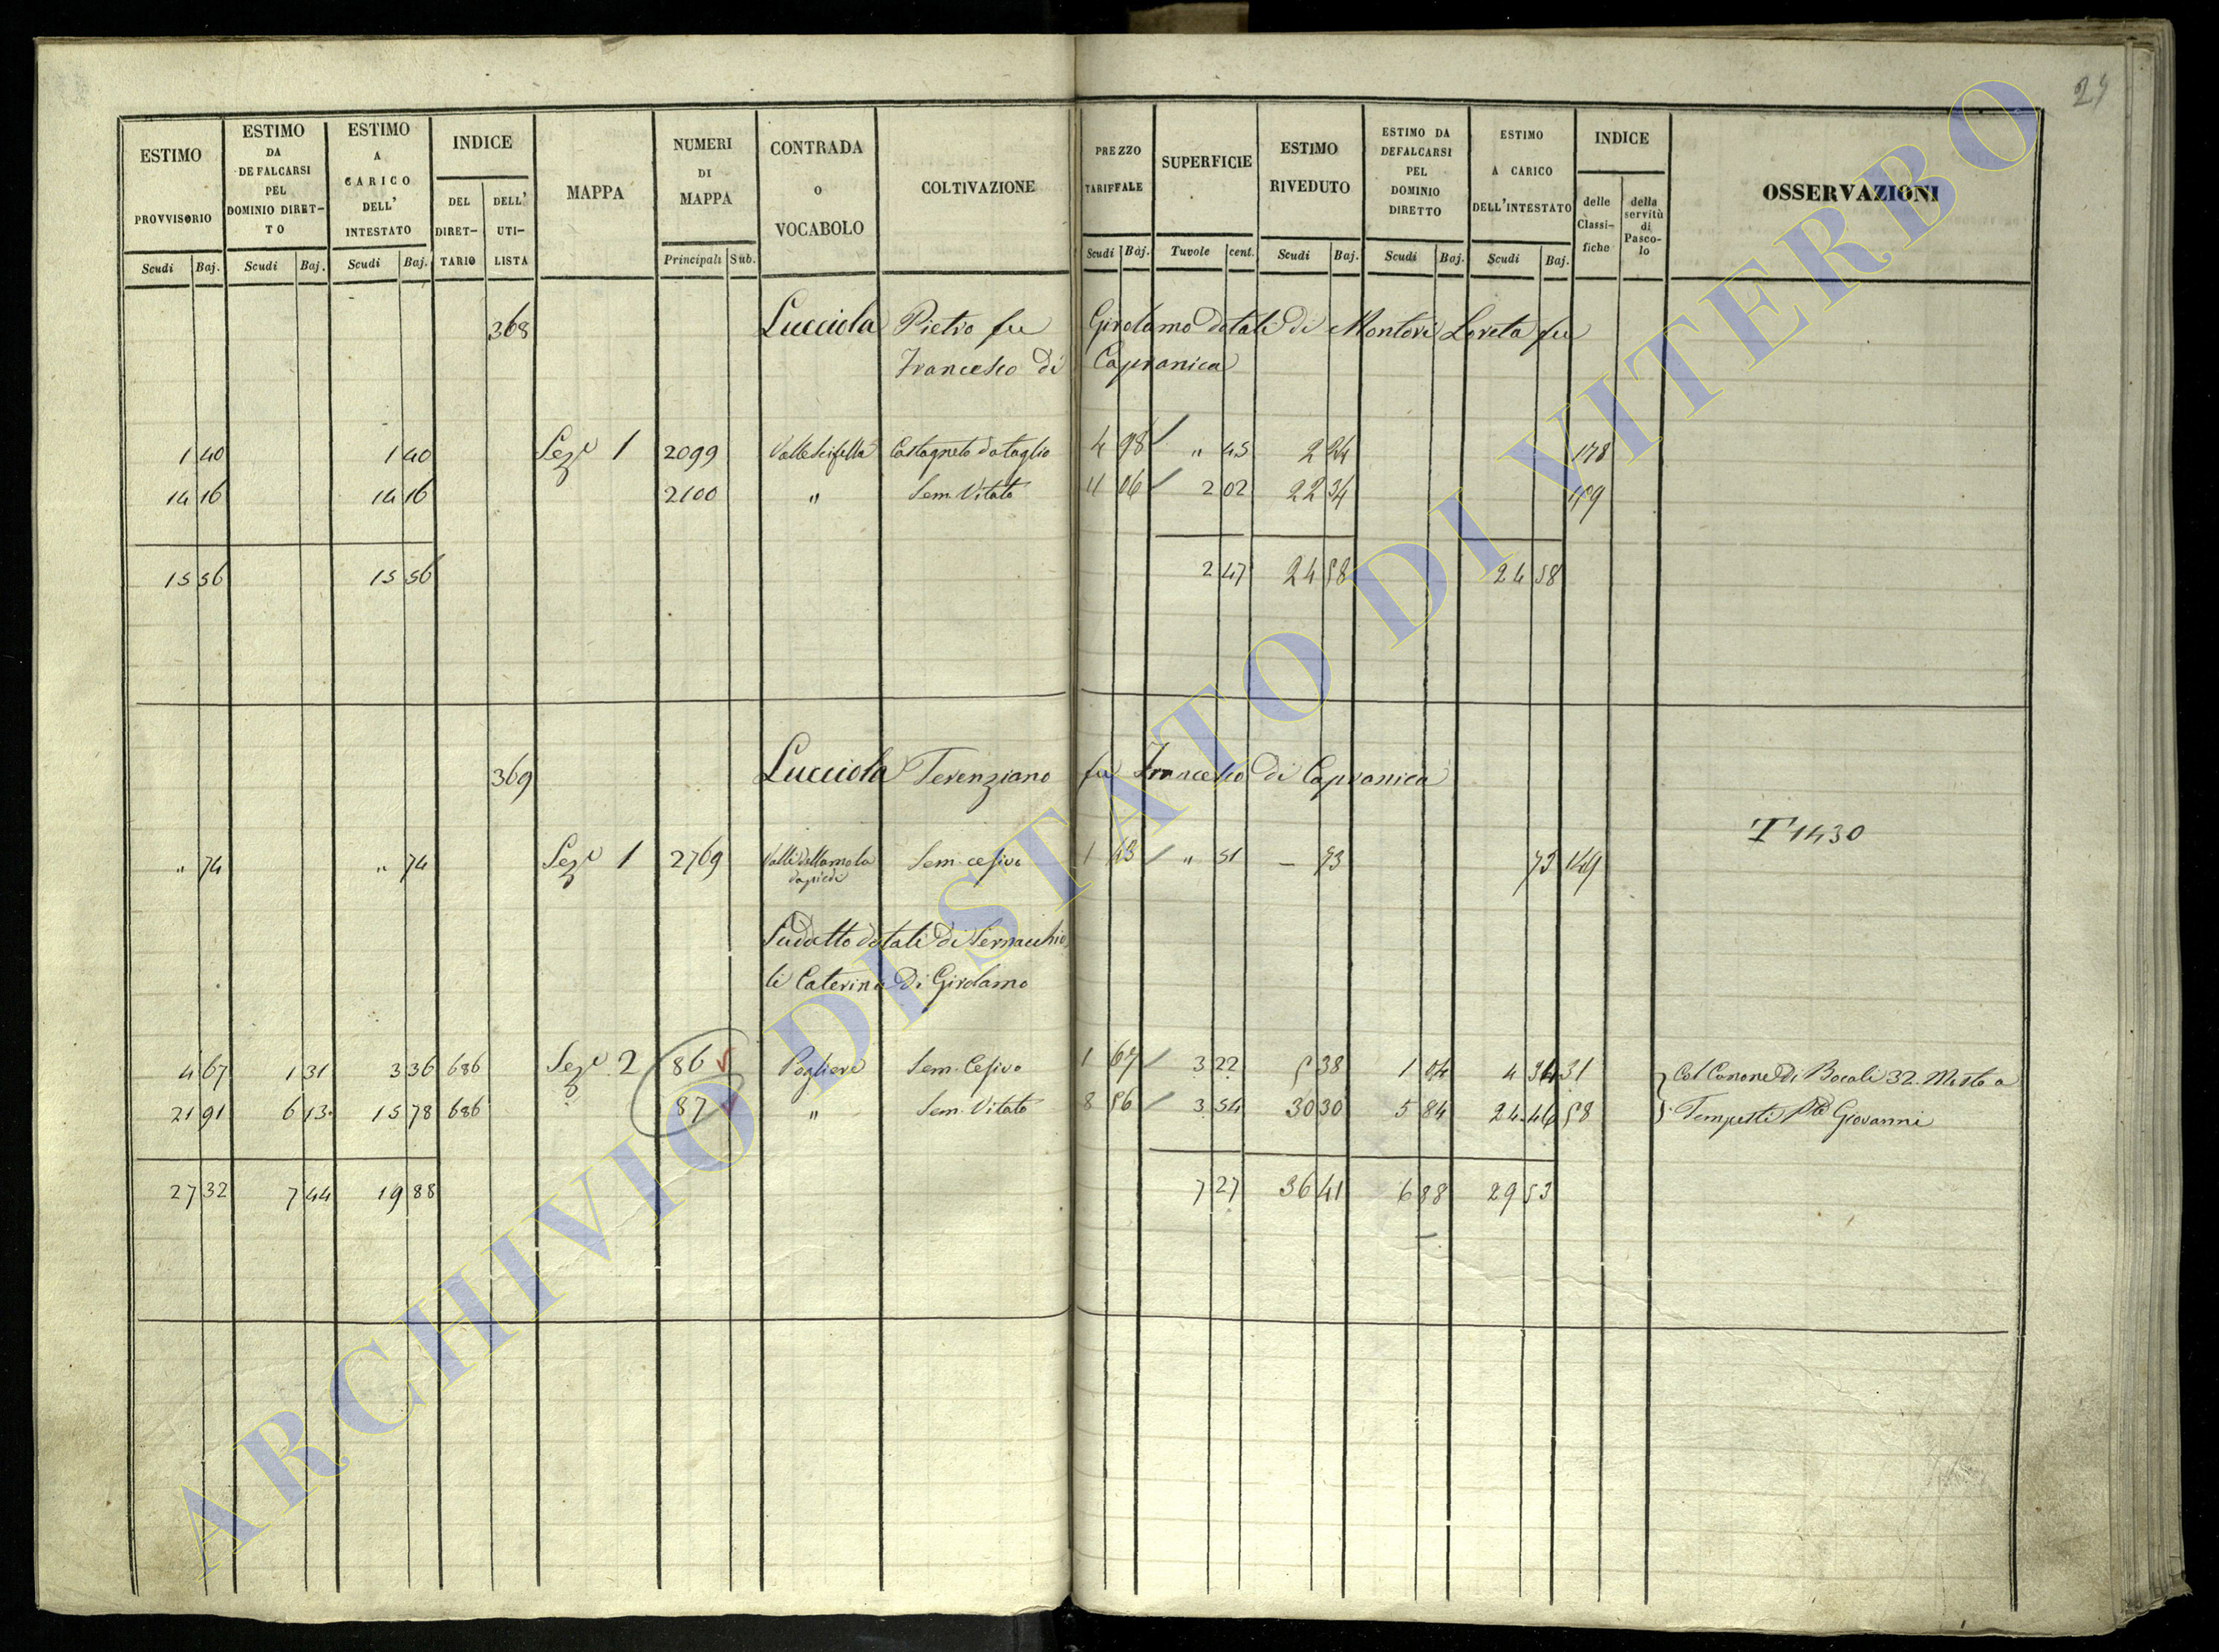 27
ESTIMO PROVVISORIO Scudi Baj.
ESTIMO DA DEFALCARSI PEL DOMINIO DIRET-TO Scudi Baj.
ESTIMO A CARICO DELL' INTESTATO Scudi Baj.
INDICE DEL DIRET-TARIO DELL' UTI-LISTA
MAPPA
NUMERI DI MAPPA Principali Sub.
CONTRADA O VOCABOLO
COLTIVAZIONE
PREZZO TARIFFALE Scudi Baj.
SUPERFICIE Tavole cent.
ESTIMO RIVEDUTO Scudi Baj.
ESTIMO DA DEFALCARSI PEL DOMINIO DIRETTO Scudi Baj.
ESTIMO A CARICO DELL'INTESTATO Scudi Baj.
INDICE delle Classi-fiche della servitù di Pasco-lo
OSSERVAZIONI
368 Lucciola Pietro fu Girolamo dotali di Montori Loreta fu
Francesco di Capranica
1 40 1 40 Sez.e 1 2099 Castagneto da taglio 4 98 " 45 2 24 178
14 16 14 16 2100 " Sem. Vitato 11 06 2 02 22 34 119
15 56 15 56 2 47 24 58 24 58
369 Lucciola Terenziano fu Francesco di Capranica
T 1430
" 74 " 74 Sez.e 1 2769 Valle della mola Sem. cesivo 1 43 " 51 — 73 73 149
da piedi
Sudatto dotali di Sernacchio
li Caterina di Girolamo
4 67 1 31 3 36 686 Sez.e 2 86 Pogliere Sem. Cesivo 1 67 3 22 5 38 1 04 4 34 31 Col Canone di Bocali 32. Mosto a
21 91 6 13 15 78 686 87 " Sem. Vitato 8 56 3 54 30 30 5 84 24 46 58 Tempesti Giovanni
27 32 7 44 19 88 7 27 36 41 6 88 29 53
ARCHIVIO DI STATO DI VITERBO